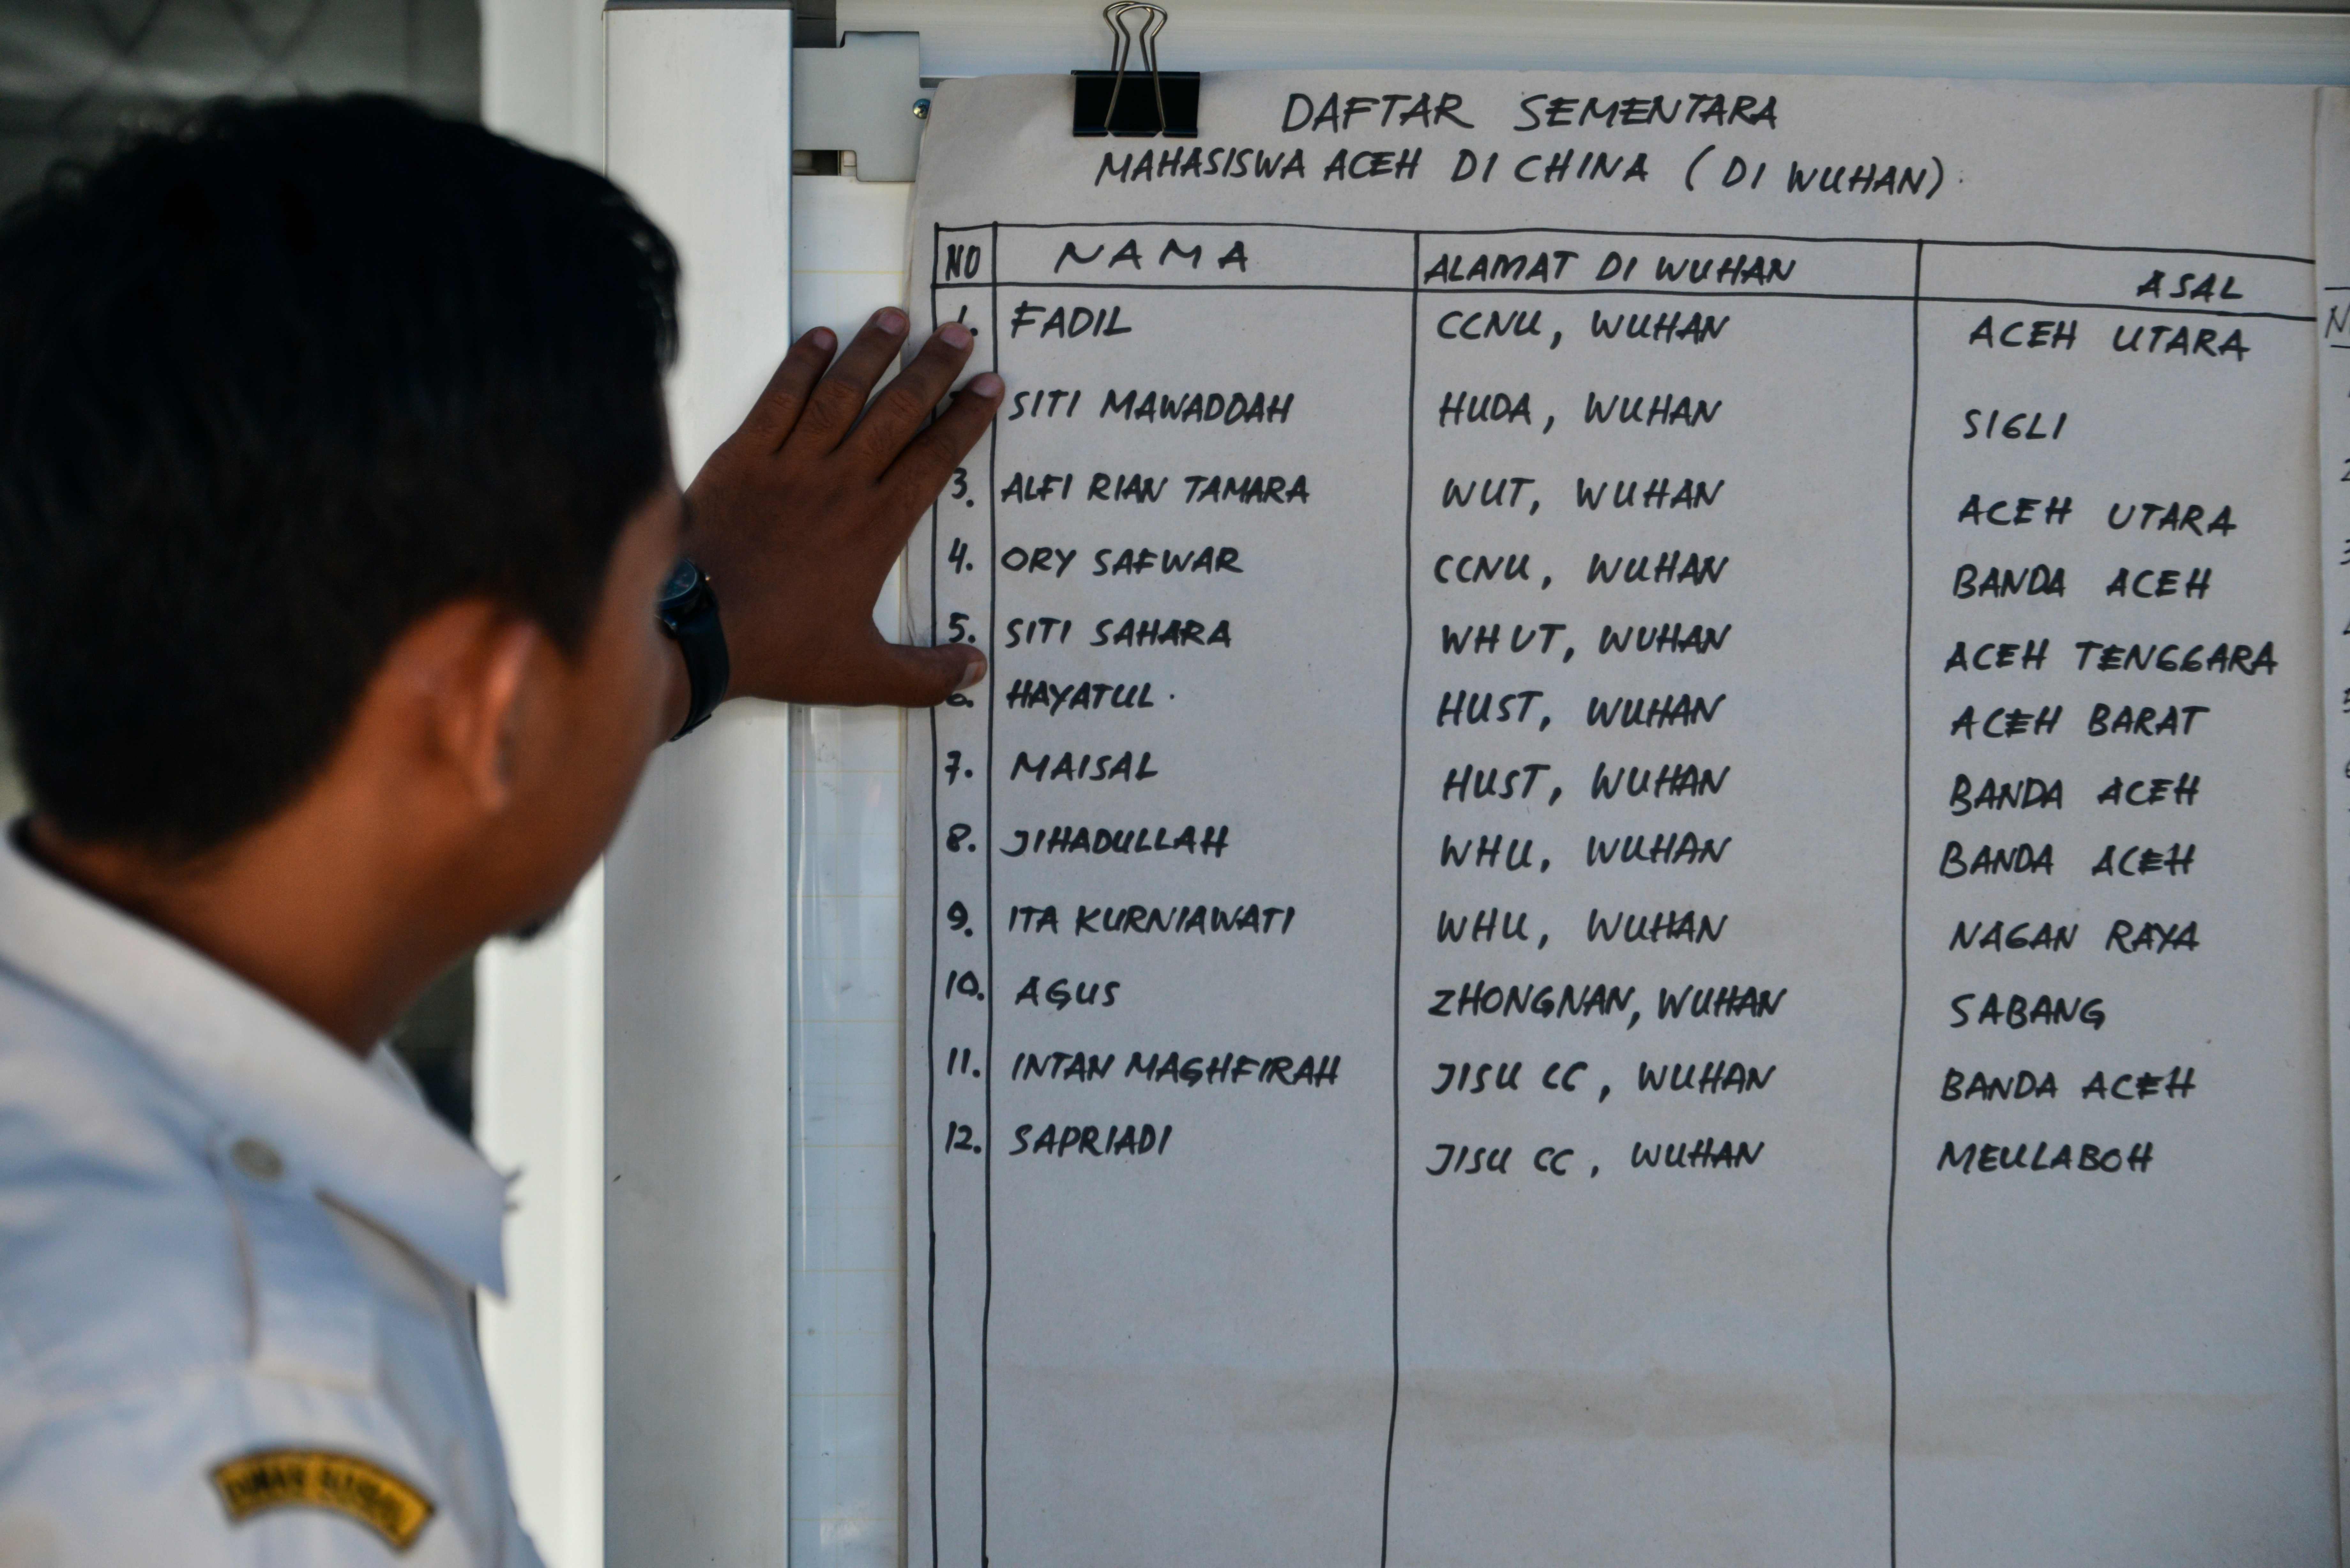 DAFTAR SEMENTARA
MAHASISWA ACEH DI CHINA (DI WUHAN)
NO NAMA ALAMAT DI WUHAN ASAL
1. FADIL CCNU, WUHAN ACEH UTARA
SITI MAWADDAH HUDA, WUHAN SIGLI
3. ALFI RIAN TAMARA WUT, WUHAN ACEH UTARA
4. ORY SAFWAR CCNU, WUHAN BANDA ACEH
5. SITI SAHARA WHUT, WUHAN ACEH TENGGARA
6. HAYATUL. HUST, WUHAN ACEH BARAT
7. MAISAL HUST, WUHAN BANDA ACEH
8. JIHADULLAH WHU, WUHAN BANDA ACEH
9. ITA KURNIAWATI WHU, WUHAN NAGAN RAYA
10. AGUS ZHONGNAN, WUHAN SABANG
11. INTAN MAGHFIRAH JISU CC, WUHAN BANDA ACEH
12. SAPRIADI JISU CC, WUHAN MEULABOH
DINAS SOSIAL